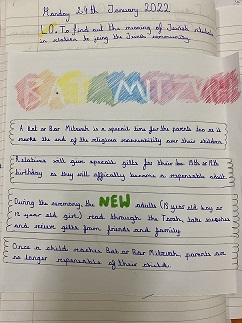 Monday 24th January 2022
LO. To find out the meaning of Jewish rituals
in relation to joining the Jewish community.
BAT MITZVAH
A Bat or Bar Mitzvah is a special time for the parents too as it
marks the end of the religious responsibility over their children
Relatives will give special gifts for their 12th or 13th
birthday as they will officially become a responsible adult.
During the ceremony, the NEW adults (13 year old boy or
12 year old girl) read through the Torah, take
and receive gifts from friends and family
Once a child reaches Bat or Bar Mitzvah, parents are
no longer responsible of their child.